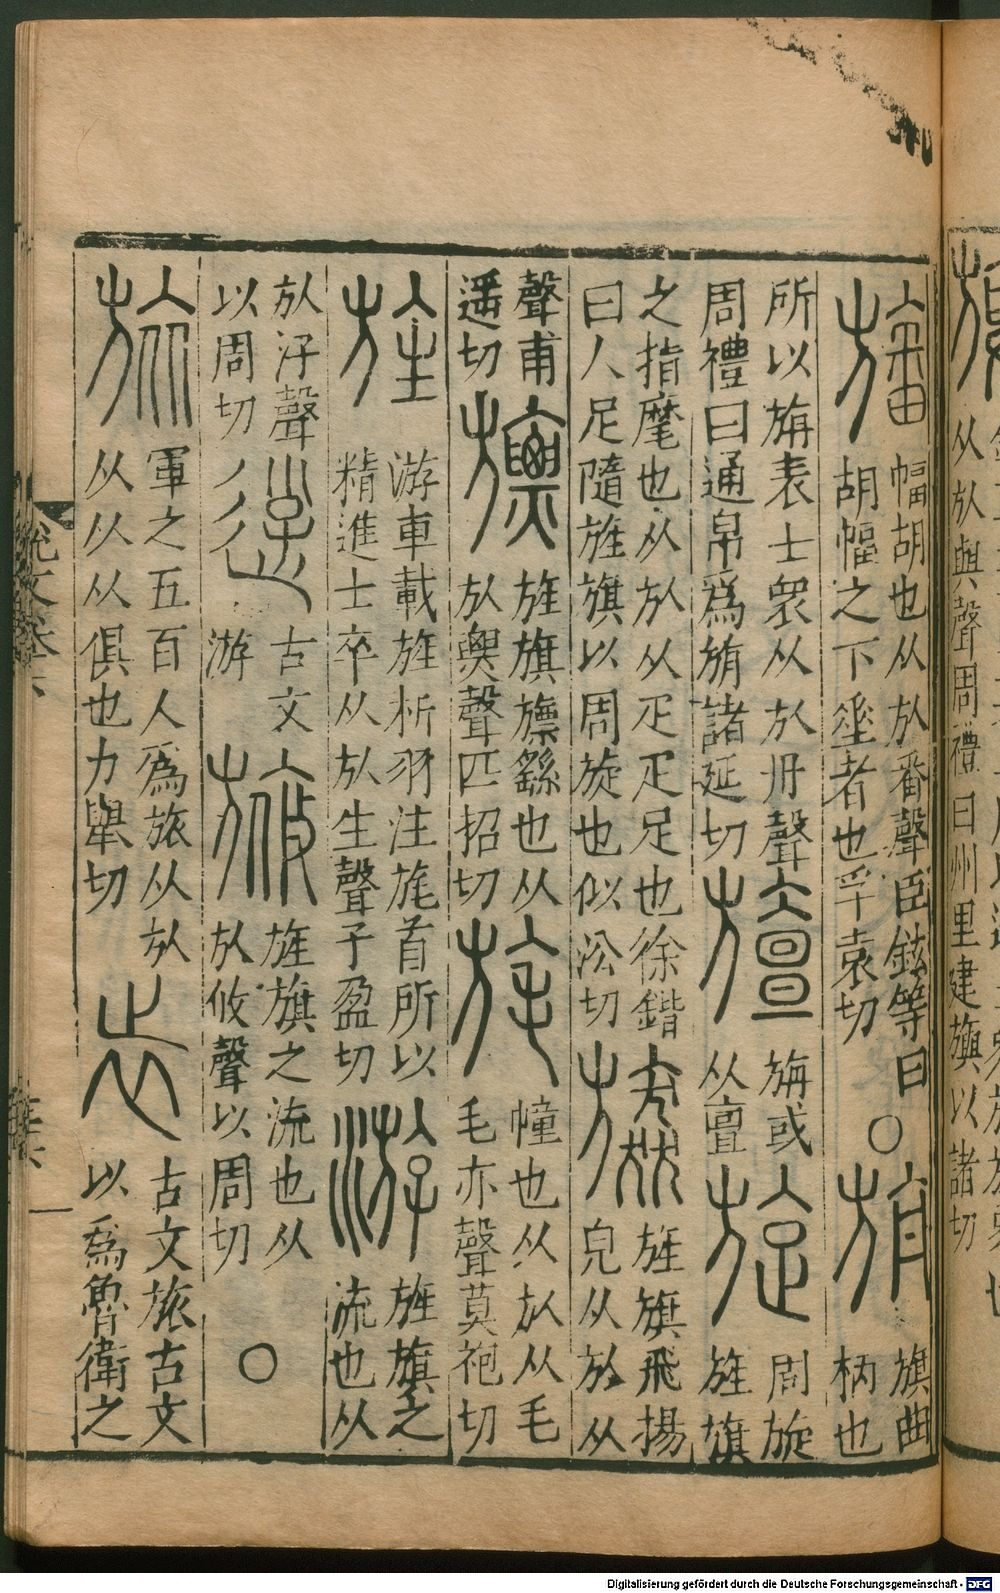 从㫃與聲周禮曰州里建旟以諸切
旛 幅胡也从㫃番聲臣鉉等曰
胡幅之下垂者也孚袁切 ○ 旃 旗曲
柄也
所以旃表士衆从㫃丹聲
周禮曰通帛爲旃諸延切 旜 旃或
从亶 旋 周旋
旌旗
之指麾也从㫃从疋疋足也徐鍇
曰人足隨旌旗以周旋也似沿切 旌旗飛揚
皃从㫃从
聲甫
遥切 旚 旌旗旚繇也从
㫃㶾聲匹招切 旄 幢也从㫃从毛
毛亦聲莫袍切
旌 游車載旌析羽注旄首所以
精進士卒从㫃生聲子盈切 游 旌旗之
流也从
㫃汓聲
以周切 𨒰 古文
游 旌旗之流也从
㫃攸聲以周切 ○
旅 軍之五百人爲旅从㫃
从从从俱也力舉切 𣥏 古文旅古文
以爲魯衛之
Digitalisierung gefördert durch die Deutsche Forschungsgemeinschaft - DFG